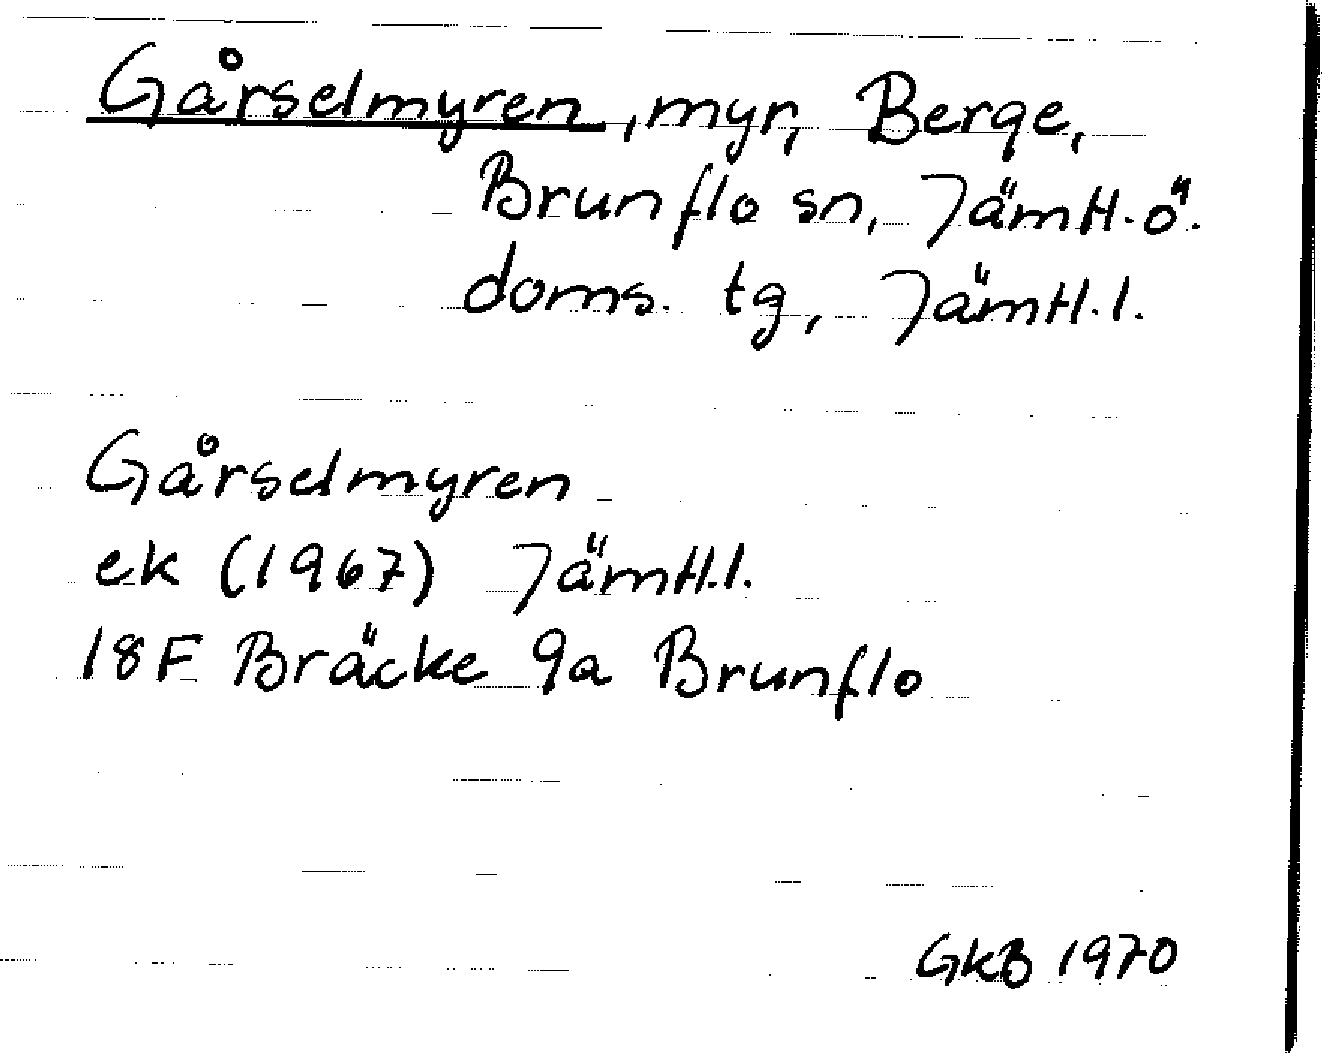 Gårselmyren, myr, Berge,
Brunflo sn, Jämtl. ö.
doms. tg, Jämtl. l.
Gårselmyren
ek (1967) Jämtl. l.
18F Bräcke 9a Brunflo
GkB 1970